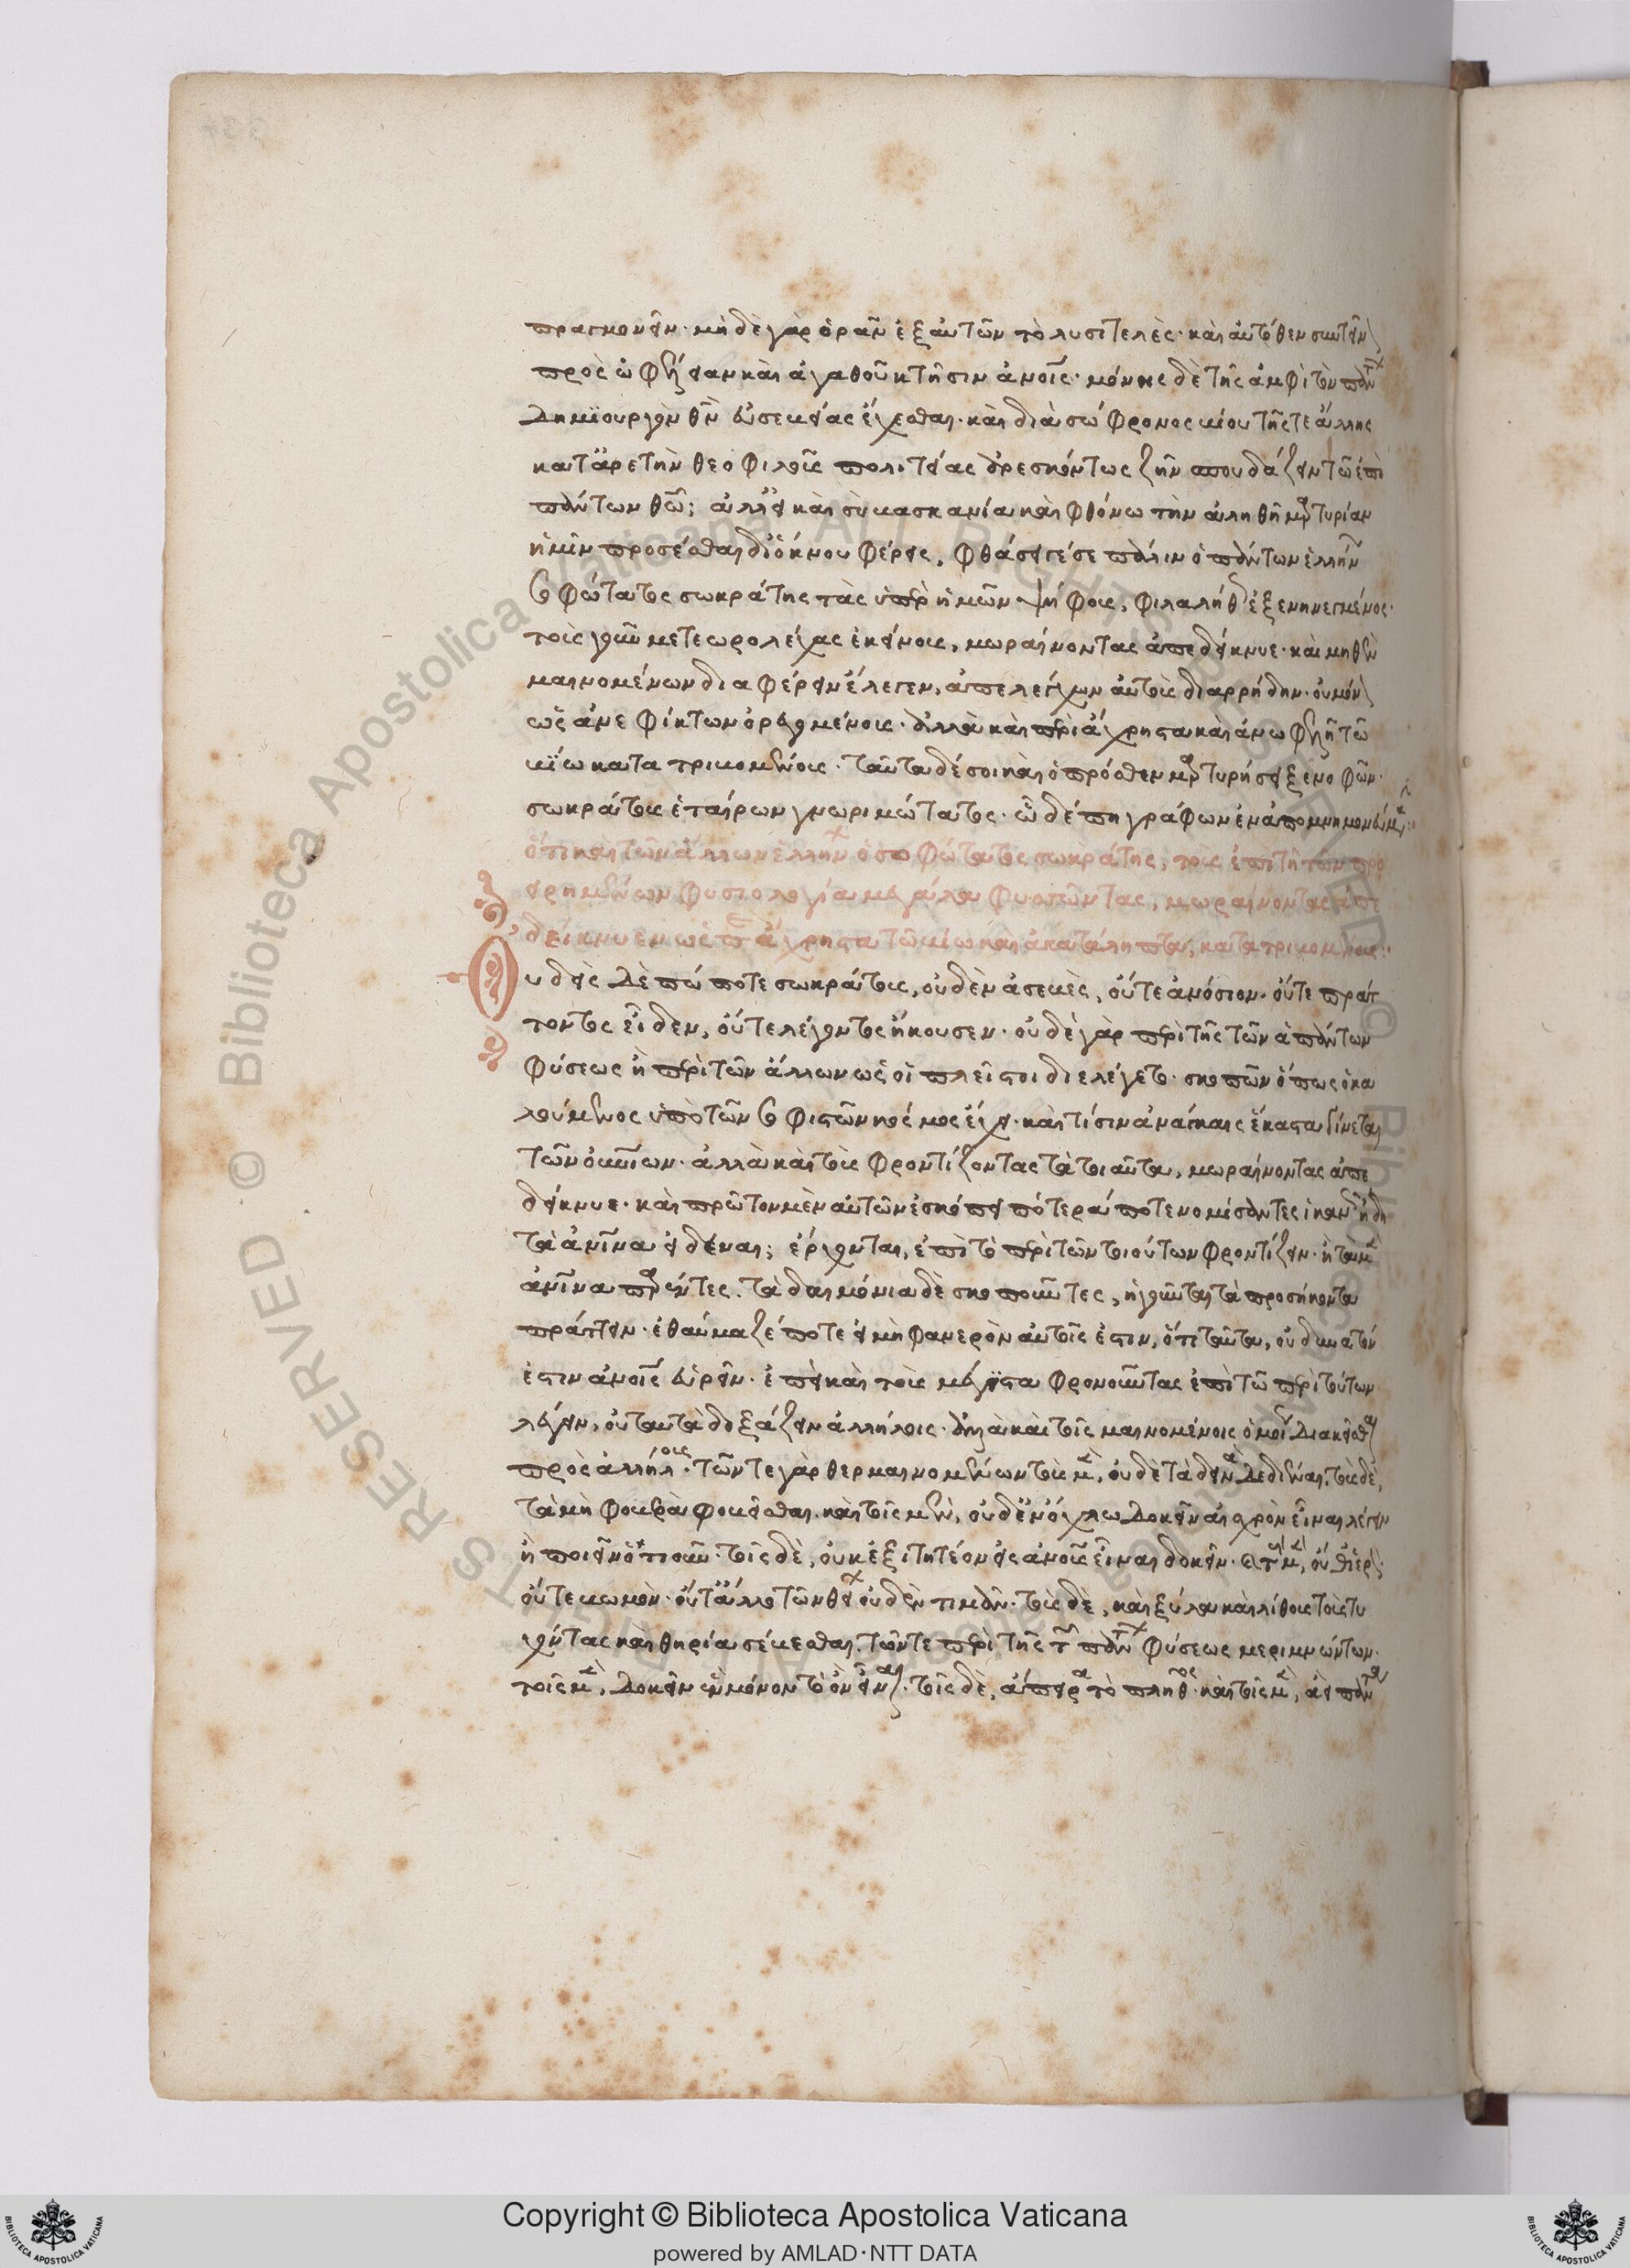 πραγμονεῖν· μηδὲ γὰρ ὁρᾶν ἐξ αὐτῶν τὸ λυσιτελὲς· καὶ αὐτόθεν συντεῖν
πρὸς ὠφέλειαν καὶ ἀγαθοῦ κτῆσιν ἀνοις· μόνης δὲ τῆς ἀμφὶ τὸν πάντων
δημϊουργὸν θν εὐσεβείας ἔχεσθαι· καὶ διὰ σώφρονος βίου τῆς τε ἄλλης
κατ' ἀρετὴν θεοφιλοῦς πολιτείας ἀρεσκόντως ζῆν σπουδάζειν τῶ ἐπὶ
πάντων θω; ἀλλ' εἰ καὶ σὺ βασκανία καὶ φθόνω τὴν ἀληθῆ μαρτυρίαν
ἡμῖν προσέσθαι δι' ὄκνου φέρεις, φθάσει γέ σε πάλιν ὁ πάντων ἑλλήνων
σοφώτατος σωκράτης τὰς ὑπὲρ ἡμῶν ψήφους, φιλαλήθ ἐξενηνεγμένος·
τοὺς γοῦν μετεωρολέσχας ἐκείνους, μωραίνοντας ἀπεδείκνυε· καὶ μηθὲν
μαινομένων διαφέρειν ἔλεγεν, ἀπελέγχων αὐτοὺς διαρρήδην· οὐ μόνον
ὡς ἀνεφίκτων ὀρεγομένους· ἀλλὰ καὶ περὶ ἄχρηστα καὶ ἀνωφελῆ τῶ
βίω κατατριβομένους· ταῦτα δέ σοι καὶ ὁ πρόσθεν μαρτυρήσει ξενοφῶν·
σωκράτους ἑταίρων γνωριμώτατος· ὧδέ πη γράφων ἐν ἀπομνημονεύμασι:
ὅτι καὶ τῶν ἄλλων ἑλλήνων ὁ σοφώτατος σωκράτης, τοὺς ἐπὶ τῆ τῶν προ
ειρημένων φυσιολογία μεγάλα φυσῶντας, μωραίνοντας ἀπε
δείκνυεν ὡς περὶ ἄχρηστα τῶ βίω καὶ ἀκατάληπτα, κατατριβομένους:
Ουδεὶς δὲ πώποτε σωκράτους, οὐδὲν ἀσεβὲς, οὔτε ἀνόσιον. οὔτε πράτ
τοντος εἶδεν, οὔτε λέγοντος ἤκουσεν· οὐδὲ γὰρ περὶ τῆς τῶν ἁπάντων
φύσεως ἢ περὶ τῶν ἄλλων ὡς οἱ πλεῖστοι διελέγετο· σκοπῶν ὅπως ὁ κα
λούμενος ὑπὸ τῶν σοφιστῶν κόσμος ἔχει· καὶ τίσιν ἀνάγκαις ἕκαστα γίνεται
τῶν οὐνίων· ἀλλὰ καὶ τοὺς φροντίζοντας τὰ τοιαῦτα, μωραίνοντας ἀπε
δείκνυε· καὶ πρῶτον μὲν αὐτῶν ἐσκόπει πότερά ποτε νομίσαντες ἱκανῶς ἤδη
τὰ ἀνινα εἰδέναι; ἔρχονται, ἐπὶ τὸ περὶ τῶν τοιούτων φροντίζειν· ἢ τὰ μὲν
ἀνινα παρέντες. τὰ δαιμόνια δὲ σκοποῦντες, ἡγοῦνται τὰ προσήκοντα
πράττειν· ἐθαύμαζέ ποτε εἰ μὴ φανερὸν αὐτοῖς ἐστιν, ὅτι ταῦτα, οὐ δυνατόν
ἐστιν ἀνοις εὑρεῖν· ἐπεὶ καὶ τοὺς μέγιστα φρονοῦντας ἐπὶ τῶ περὶ τούτων
λέγειν, οὐ ταυτὰ δοξάζειν ἀλλήλοις· ἀλλὰ καὶ τοῖς μαινομένοις ὁμοίως διακεῖσθαι
πρὸς ἀλλήλους· τῶν τε γὰρ θερμαινομένων τοὺς μὲν, οὐδὲ τὰ δεινὰ δεδιέναι, τοὺς δὲ,
τὰ μὴ φοβερὰ φοβεῖσθαι. καὶ τοῖς μὲν, οὐδ' ἐν ὄχλω δοκεῖν αἰσχρὸν εἶναι λέγειν
ἢ ποιεῖν ὁτιοῦν· τοῖς δὲ, οὐκ ἐξιτητέον εἰς ἀνους εἶναι δοκεῖν· καὶ τοὺς μὲν, οὔθ' ἱερὸν·
οὔτε βωμὸν· οὔτ' ἄλλο τῶν θείων οὐδὲν τιμᾶν· τοὺς δὲ, καὶ ξύλα καὶ λίθους τοὺς τυ
χόντας καὶ θηρία σέβεσθαι. τῶν τε περὶ τῆς τῶν πάντων φύσεως μεριμνώντων·
τοῖς μὲν, δοκεῖν ἓν μόνον τὸ ὂν εἶναι· τοῖς δὲ, ἄπειρα τὸ πλῆθος· καὶ τοῖς μὲν, ἀεὶ πάντα
Copyright © Biblioteca Apostolica Vaticana
powered by AMLAD·NTT DATA